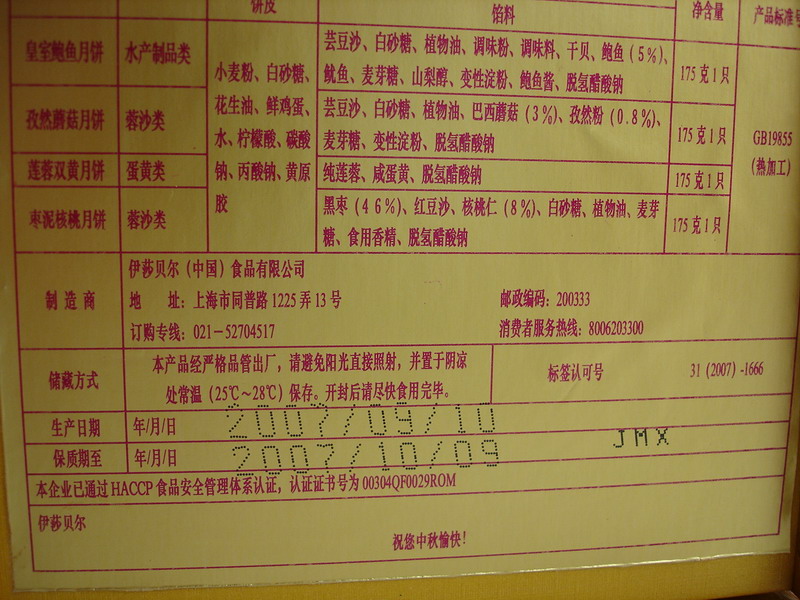 饼皮 馅料 净含量 产品标准号
皇室鲍鱼月饼 水产制品类 芸豆沙、白砂糖、植物油、调味粉、调味料、干贝、鲍鱼(5%)、
鱿鱼、麦芽糖、山梨醇、变性淀粉、鲍鱼酱、脱氢醋酸钠 175克1只
孜然蘑菇月饼 蓉沙类 芸豆沙、白砂糖、植物油、巴西蘑菇(3%)、孜然粉(0.8%)、
麦芽糖、变性淀粉、脱氢醋酸钠 175克1只
莲蓉双黄月饼 蛋黄类 纯莲蓉、咸蛋黄、脱氢醋酸钠 175克1只
枣泥核桃月饼 蓉沙类 黑枣(46%)、红豆沙、核桃仁(8%)、白砂糖、植物油、麦芽
糖、食用香精、脱氢醋酸钠 175克1只
小麦粉、白砂糖、
花生油、鲜鸡蛋、
水、柠檬酸、碳酸
钠、丙酸钠、黄原
胶
GB19855
(热加工)
制造商 伊莎贝尔(中国)食品有限公司
地 址:上海市同普路1225弄13号 邮政编码:200333
订购专线:021-52704517 消费者服务热线:8006203300
储藏方式 本产品经严格品管出厂,请避免阳光直接照射,并置于阴凉
处常温(25℃~28℃)保存。开封后请尽快食用完毕。
标签认可号 31(2007)-1666
生产日期 年/月/日 2007/09/10
JMX
保质期至 年/月/日 2007/10/09
本企业已通过HACCP食品安全管理体系认证,认证证书号为00304QF0029ROM
伊莎贝尔
祝您中秋愉快!